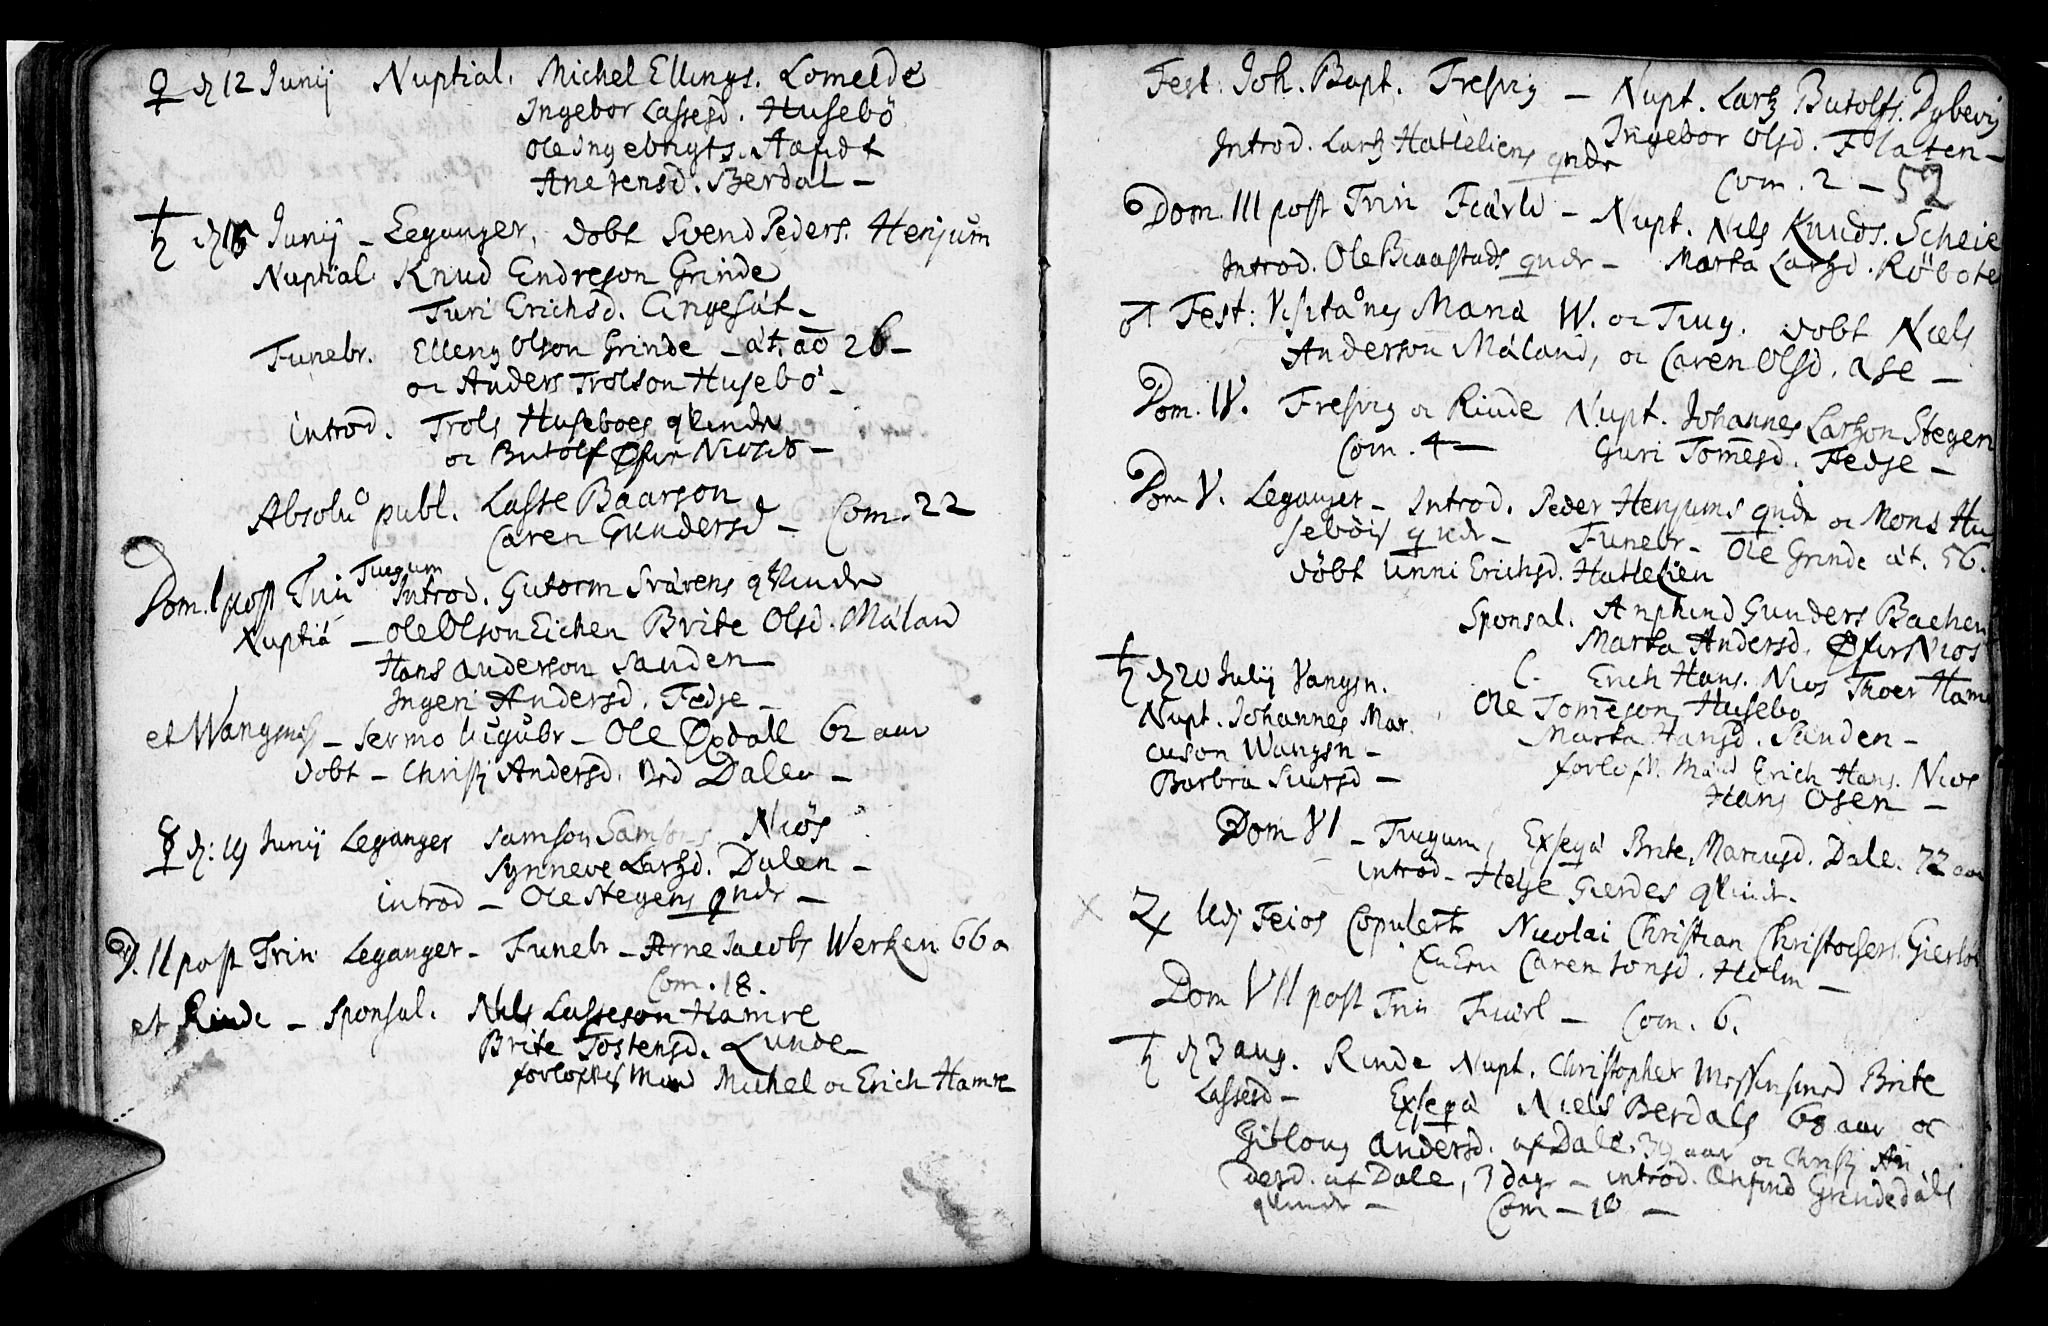 ♀ d 12 Junij Nuptial. Michel Ellings. Lomelde
Ingebor Lassesd. Husebö
Ole Ingebrigts.
Ane Jensd. Berdal –
♄ d 15 Junij – Leganger, döbt Svend Peders. Henjum
Nuptial. Knud Endreson Grinde
Turi Erichsd. Engesæt –
Funebr. Elleng Olson Grinde – æt. aō 26 –
oc Anders Trolson Husebö –
introd. Trols Huseboes qvinde
oc Butolf Øfer Niøs –
Absolu° publ. Lasse Baarson
Caren Gundersd – Com. 22
Dom. I post Trin Tiugum Introd. Gutorm Svärens qvinde
Nuptiæ – Ole Olson Eichen Brite Olsd. Mäland
Hans Anderson Sanden
Ingeri Andersd. Fedse –
et Wangsnes – Sermo lugubr – Ole Øxdall 62 aar
döbt – Christj Andersd. Ned Dalen –
☿ d: 19 Junij Leganger Samson Samsons Niøs
Synneve Larsd. Dalen –
introd – Ole Stegens qndr –
D. II post Trin Leganger – Funebr – Arne Jacobs Werken 66 a
Com. 18.
et Rinde – Sponsal. Niels Lasseson Hamre
Brite Tostensd. Lunde –
forloftes Mænd Michel oc Erich Hamre
Fest. Joh. Bapt. Fresvig – Nupt. Lars Butolfs. Dybevig
Ingebor Olsd. Flaten –
Introd. Lars Hatleliens qndr Com. 2 – 52
Dom. III post Trin Fiærld – Nupt. Niels Knuds. Scheie
Introd. Ole Baastads qndr – Marta Larsd. Röbote
Fest: Visita°nis Mariæ W. oc Tiug. döbt Niels
Anderson Mäland, oc Caren Olsd. ase –
Dom. IV. Fresvig oc Rinde Nupt. Johannes Larson Stegen
Com. 4 – Guri Tomesd. Fedse –
Dom V. Leganger – Introd. Peder Henjums qndr oc Mons Hu
seböis qndr – Funebr – Ole Grinde æt. 56.
döbt Unni Erichsd. Hatlelien
Sponsal. Anphind Gunders Bachen
Marta Andersd. Øfer Niøs
♄ d 20 Julij Vangsn. Erich Hans. Niøs Thoer Ham
Nupt. Johannes Mar. Ole Tomeson Husebo
cuson Wangsn – Marta Hansd. Sanden –
Barbra Siursd – forloft. Mænd Erich Hans. Niøs
Hans Osen –
Dom VI – Tiugum, Exseqiæ Brite Mariusd. Dale. 72 aar
introd – Helje Gierdes qvinde.
♃ Feios Copulert Nicolai Christian Christophers. Gierlöf
Caren Jonsd. Holm –
Dom VII post Trin Fiærl – Com. 6.
♄ d 3 aug. Rinde Nupt. Christopher Brite
Lassesd – Exseqiæ Niels Berdals 68 aar oc
Giblaug Andersd. af Dale, 39 aar oc Christj An
dersd. af Dale, 3 dage – introd. Anfind Grindedals
qvinde – Com – 10 –